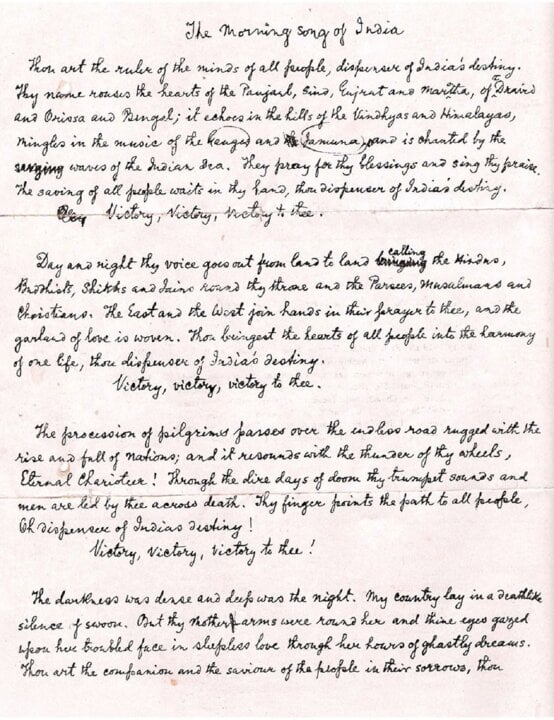 The Morning song of India
Thou art the ruler of the minds of all people, dispenser of India's destiny.
Thy name rouses the hearts of the Panjaub, Sind, Gujrat and Maratha, of Dravid
and Orissa and Bengal; it echoes in the hills of the Vindhyas and Himalayas,
mingles in the music of the Ganges and Jamuna and is chanted by the
waves of the Indian Sea. They pray for thy blessings and sing thy praise.
The saving of all people waits in thy hand, thou dispenser of India's destiny.
Victory, Victory, Victory to thee.
Day and night thy voice goes out from land to land calling the Hindus,
Buddhists, Sikhs and Jains round thy throne and the Parsees, Musulmans and
Christians. The East and the West join hands in their prayer to thee, and the
garland of love is woven. Thou bringest the hearts of all people into the harmony
of one life, thou dispenser of India's destiny.
Victory, victory, victory to thee.
The procession of pilgrims passes over the endless road rugged with the
rise and fall of nations; and it resounds with the thunder of thy wheels,
Eternal Charioteer! Through the dire days of doom thy trumpet sounds and
men are led by thee across death. Thy finger points the path to all people,
Oh dispenser of India's destiny!
Victory, Victory, Victory to thee!
The darkness was dense and deep was the night. My country lay in a deathlike
silence of swoon. But thy mother arms were round her and thine eyes gazed
upon her troubled face in sleepless love through her hours of ghastly dreams.
Thou art the companion and the saviour of the people in their sorrows, thou